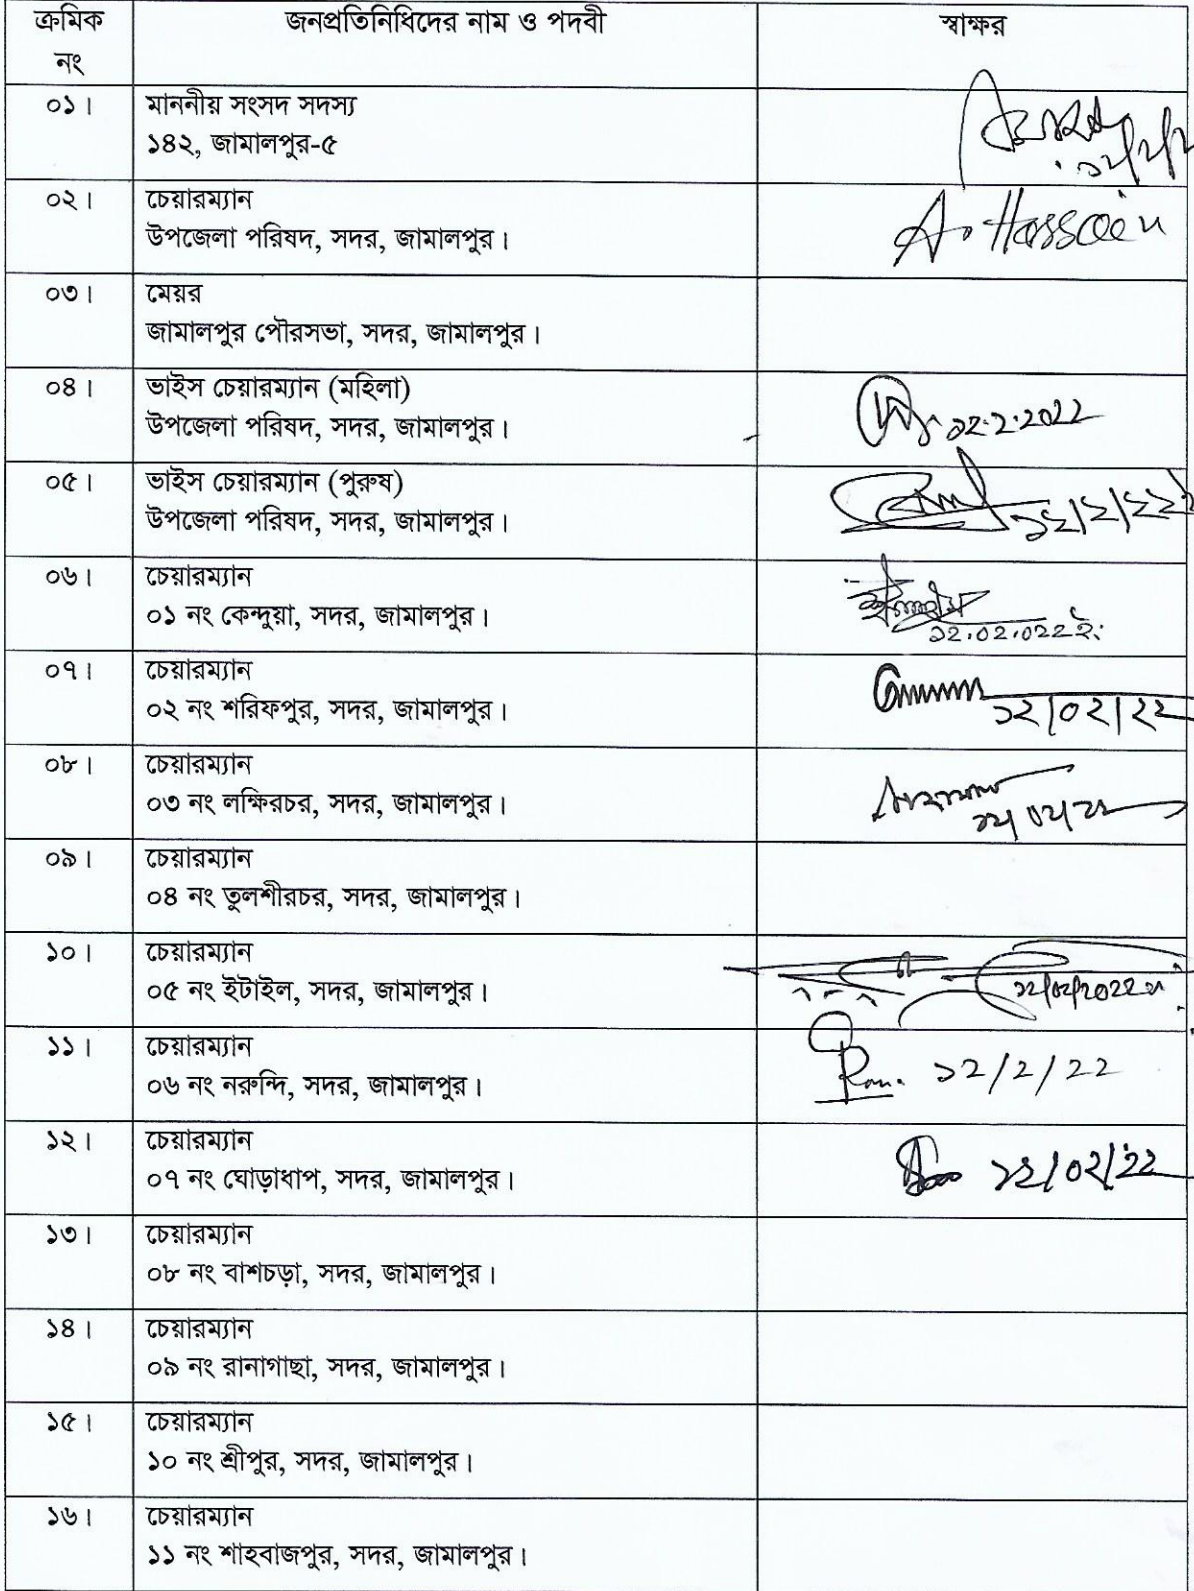 ক্রমিক নং জনপ্রতিনিধিদের নাম ও পদবী স্বাক্ষর
০১। মাননীয় সংসদ সদস্য
১৪২, জামালপুর-৫
০২। চেয়ারম্যান
উপজেলা পরিষদ, সদর, জামালপুর। A. Hossain
০৩। মেয়র
জামালপুর পৌরসভা, সদর, জামালপুর।
০৪। ভাইস চেয়ারম্যান (মহিলা)
উপজেলা পরিষদ, সদর, জামালপুর। ১২.২.২০২২
০৫। ভাইস চেয়ারম্যান (পুরুষ)
উপজেলা পরিষদ, সদর, জামালপুর। ১২/২/২২
০৬। চেয়ারম্যান
০১ নং কেন্দুয়া, সদর, জামালপুর। ১২.০২.০২২ ইং
০৭। চেয়ারম্যান
০২ নং শরিফপুর, সদর, জামালপুর। ১২/০২/২২
০৮। চেয়ারম্যান
০৩ নং লক্ষিরচর, সদর, জামালপুর। ১২/০২/২২
০৯। চেয়ারম্যান
০৪ নং তুলশীরচর, সদর, জামালপুর।
১০। চেয়ারম্যান
০৫ নং ইটাইল, সদর, জামালপুর। ১২/০২/২০২২
১১। চেয়ারম্যান
০৬ নং নরুন্দি, সদর, জামালপুর। ১২/২/২২
১২। চেয়ারম্যান
০৭ নং ঘোড়াধাপ, সদর, জামালপুর। ১২/০২/২২
১৩। চেয়ারম্যান
০৮ নং বাশচড়া, সদর, জামালপুর।
১৪। চেয়ারম্যান
০৯ নং রানাগাছা, সদর, জামালপুর।
১৫। চেয়ারম্যান
১০ নং শ্রীপুর, সদর, জামালপুর।
১৬। চেয়ারম্যান
১১ নং শাহবাজপুর, সদর, জামালপুর।